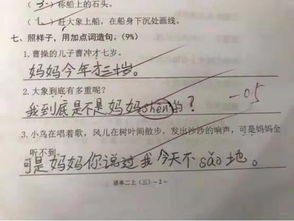 (3)称船上的石头。
( )赶大象上船，在船身下沉处画线。
七、照样子，用加点词造句。(9%)
1.曹操的儿子曹冲才七岁。
妈妈今年才三十岁。
2.大象到底有多重呢？
我到底是不是妈妈shēn的？
-0.5
3.小鸟在唱着歌，风儿在树叶间散步，发出沙沙的响声，可是妈妈全
听不到。
可是妈妈你说过我今天不sǎo地。
语单二上（三）-2-